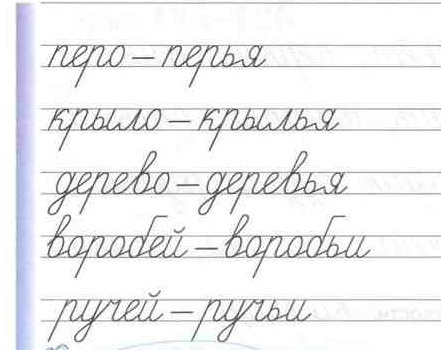 перо – перья
крыло – крылья
дерево – деревья
воробей – воробьи
ручей – ручьи